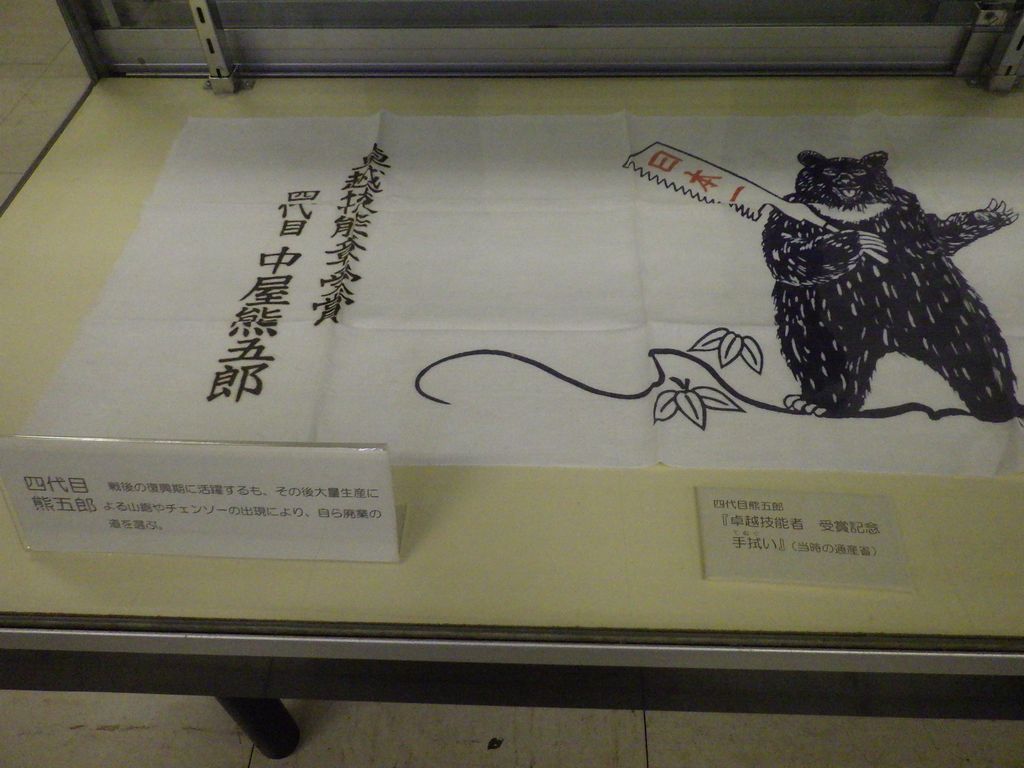 卓越技能章受賞
四代目 中屋熊五郎
日本一
四代目
熊五郎
戦後の復興期に活躍するも、その後大量生産に
よる山鋸やチェンソーの出現により、自ら廃業の
道を選ぶ。
四代目熊五郎
『卓越技能者 受賞記念
てぬぐ
手拭い』(当時の通産省)